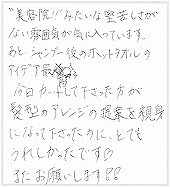 "美容院!!"みたいな堅苦しさが
ない雰囲気が気に入っています。
あと、シャンプー後のホットタオルの
アイデア最
今日カットして下さった方が
髪型のアレンジの提案を親身
になって下さったのに、とても
うれしかったです
またお願いします!!